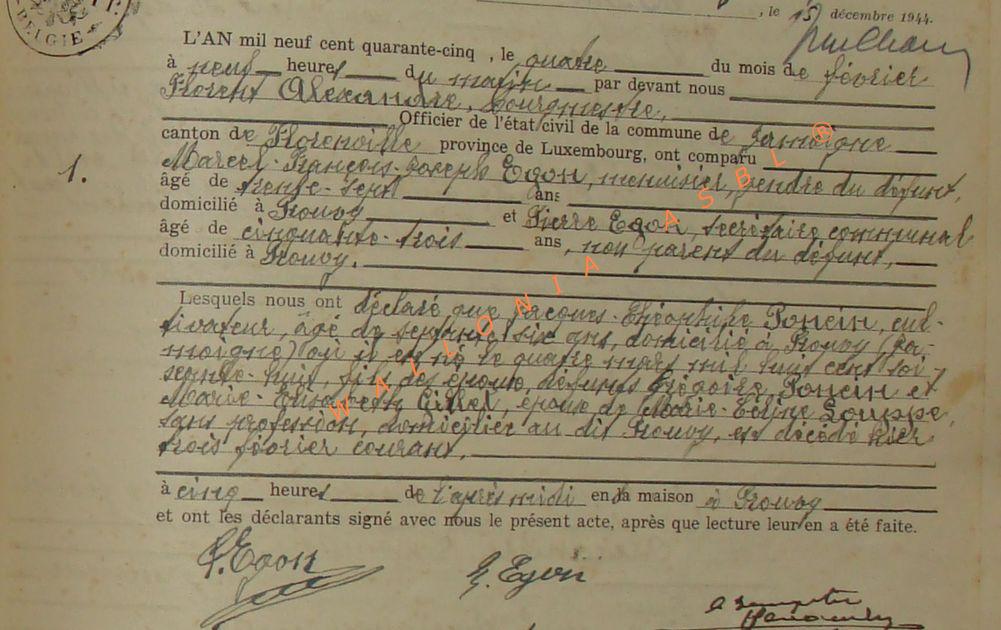 BELGIE
, le 15 décembre 1944.
L'AN mil neuf cent quarante-cinq , le quatre du mois de février
à neuf heures du matin par devant nous
Florent Alexandre, bourgmestre,
Officier de l'état civil de la commune de Jamoigne
canton de Florenville province de Luxembourg, ont comparu
1. Marcel-François-Joseph Egon, menuisier, gendre du défunt,
âgé de trente-sept ans
domicilié à Prouvy et Pierre Egon, secrétaire communal
âgé de cinquante-trois ans, non parent du défunt,
domicilié à Prouvy.
Lesquels nous ont déclaré que Jacques-Théophile Poncin, cul-
tivateur, âgé de septante six ans, domicilié à Prouvy (Ja-
moigne) où il est né le quatre mars mil huit cent soi-
xante-huit, fils des époux défunts Grégoire Poncin et
Marie-Elisabeth, époux de Marie- Louppe,
sans profession, domiciliée au dit Prouvy, est décédé hier
trois février courant,
à cinq heures de l'après midi en la maison à Prouvy
et ont les déclarants signé avec nous le présent acte, après que lecture leur en a été faite.
Egon
Egon
WALLONIA ASBL ®